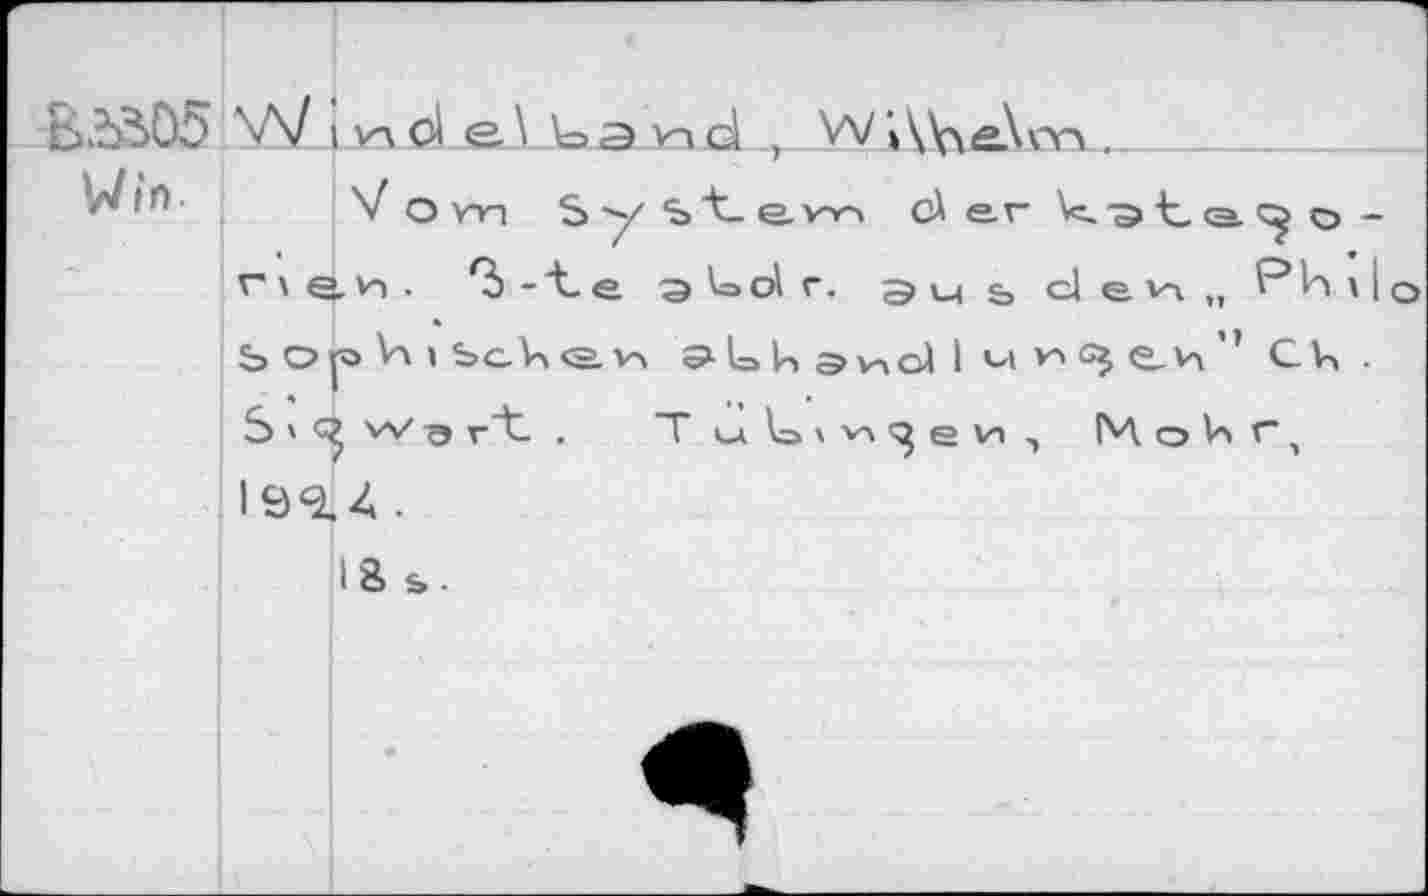 B.3305 Windelband, Wilhelm.
Win. Vom System der katego-
rien. 3-te abdr. aus den „Philo
sophischen abhandlungen" Ch.
Sigwart. Tübingen, Mohr,
1924.
18 s.